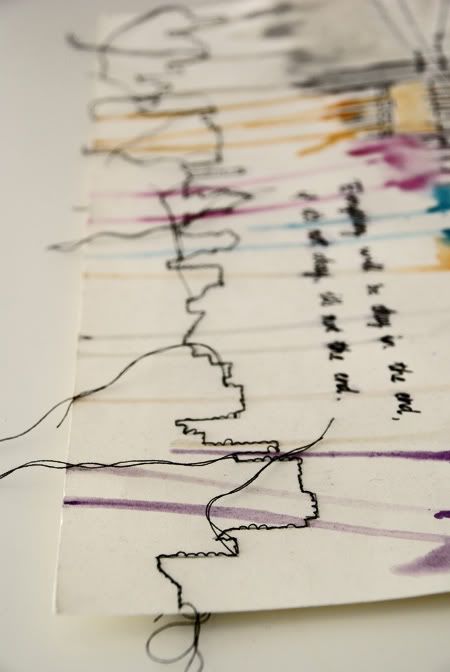 Everything will be okay in the end,
if it's not okay, it's not the end.